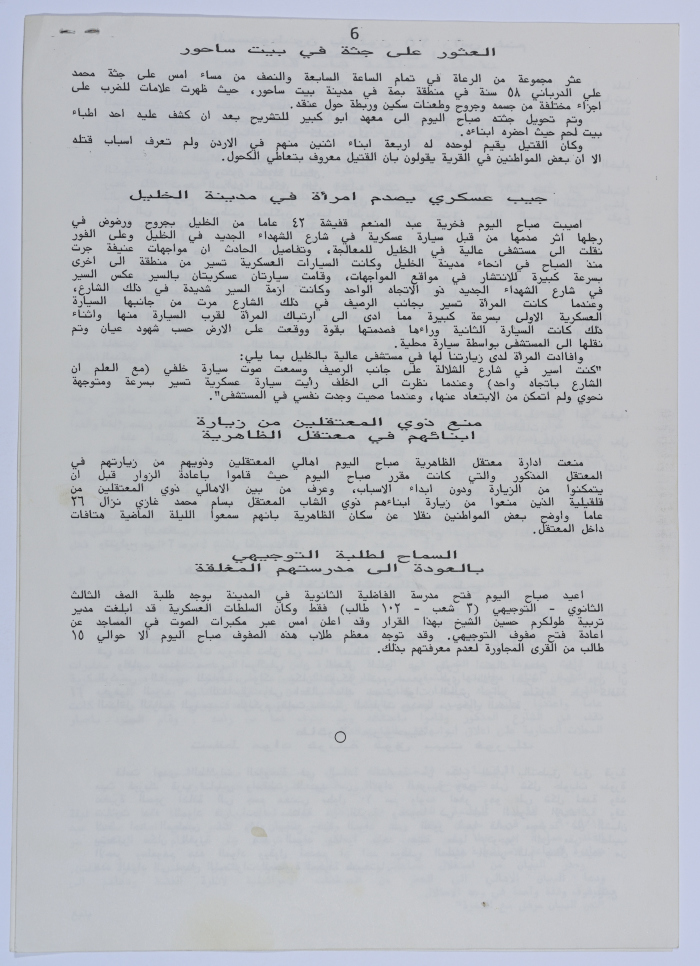 6
العثور على جثة في بيت ساحور
عثر مجموعة من الرعاة في تمام الساعة السابعة والنصف من مساء امس على جثة محمد
علي الدرباني ٥٨ سنة في منطقة بصة في مدينة بيت ساحور، حيث ظهرت علامات للضرب على
اجزاء مختلفة من جسمه وجروح وطعنات سكين وربطة حول عنقه.
وتم تحويل جثته صباح اليوم الى معهد ابو كبير للتشريح بعد ان كشف عليه احد اطباء
بيت لحم حيث احضره ابناءه.
وكان القتيل يقيم لوحده له اربعة ابناء اثنين منهم في الاردن ولم تعرف اسباب قتله
الا ان بعض المواطنين في القرية يقولون بان القتيل معروف بتعاطي الكحول.
جيب عسكري يصدم امرأة في مدينة الخليل
اصيبت صباح اليوم فخرية عبد المنعم قفيشة ٤٢ عاما من الخليل بجروح ورضوض في
رجلها اثر صدمها من قبل سيارة عسكرية في شارع الشهداء الجديد في الخليل وعلى الفور
نقلت الى مستشفى عالية في الخليل للمعالجة، وتفاصيل الحادث ان مواجهات عنيفة جرت
منذ الصباح في انحاء مدينة الخليل وكانت السيارات العسكرية تسير من منطقة الى اخرى
بسرعة كبيرة للانتشار في مواقع المواجهات، وقامت سيارتان عسكريتان بالسير عكس السير
في شارع الشهداء الجديد ذو الاتجاه الواحد وكانت ازمة السير شديدة في ذلك الشارع،
وعندما كانت المرأة تسير بجانب الرصيف في ذلك الشارع مرت من جانبها السيارة
العسكرية الاولى بسرعة كبيرة مما ادى الى ارتباك المرأة لقرب السيارة منها واثناء
ذلك كانت السيارة الثانية وراءها فصدمتها بقوة ووقعت على الارض حسب شهود عيان وتم
نقلها الى المستشفى بواسطة سيارة محلية.
وافاادت المرأة لدى زيارتنا لها في مستشفى عالية بالخليل بما يلي:
"كنت اسير في شارع الشلالة على جانب الرصيف وسمعت صوت سيارة خلفي (مع العلم ان
الشارع باتجاه واحد) وعندما نظرت الى الخلف رأيت سيارة عسكرية تسير بسرعة ومتوجهة
نحوي ولم اتمكن من الابتعاد عنها، وعندما صحيت وجدت نفسي في المستشفى".
منع ذوي المعتقلين من زيارة
ابنائهم في معتقل الظاهرية
منعت ادارة معتقل الظاهرية صباح اليوم اهالي المعتقلين وذويهم من زيارتهم في
المعتقل المذكور والتي كانت مقرر صباح اليوم حيث قاموا باعادة الزوار قبل ان
يتمكنوا من الزيارة ودون ابداء الاسباب، وعرف من بين الاهالي ذوي المعتقلين من
قلقيلية الذين منعوا من زيارة ابناءهم ذوي الشاب المعتقل بسام محمد غازي نزال ٢٦
عاما واوضح بعض المواطنين نقلا عن سكان الظاهرية بانهم سمعوا الليلة الماضية هتافات
داخل المعتقل.
السماح لطلبة التوجيهي
بالعودة الى مدرستهم المغلقة
اعيد صباح اليوم فتح مدرسة الفاضلية الثانوية في المدينة يوجد طلبة الصف الثالث
الثانوي - التوجيهي (٣ شعب - ١٠٢ طالب) فقط وكان السلطات العسكرية قد ابلغت مدير
تربية طولكرم حسين الشيخ بهذا القرار وقد اعلن امس عبر مكبرات الصوت في المساجد عن
اعادة فتح صفوف التوجيهي. وقد توجه معظم طلاب هذه الصفوف صباح اليوم الا حوالي ١٥
طالب من القرى المجاورة لعدم معرفتهم بذلك.